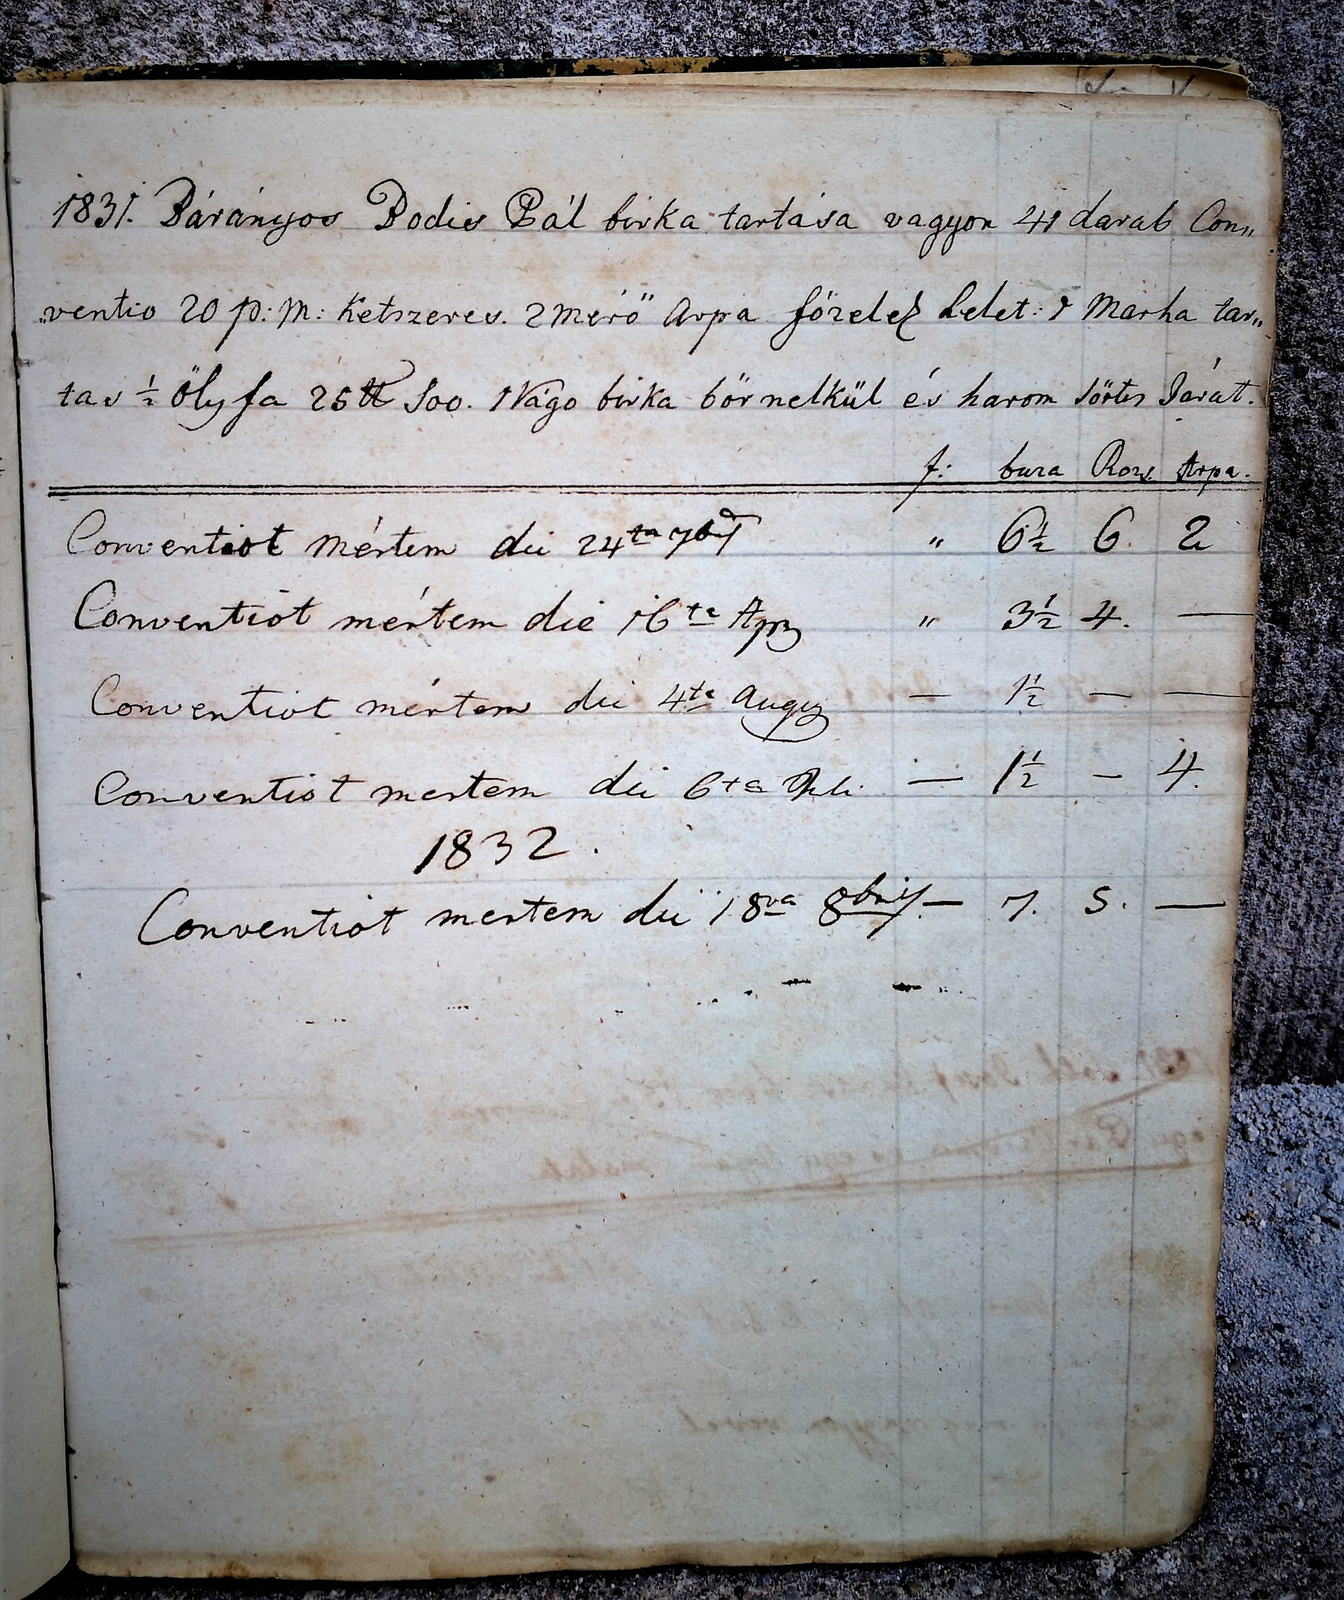 1831. Bárányos Bodis Pál birka tartása vagyon 41 darab Con„
„ventio 20 p: m: Kétszeres. 2 mérő Arpa főzelek Lelet: 1 Marha tar„
tas ½ Öly fa 25 ℔ Soo. 1 Vágo birka bőr nelkül és harom sörtes Járát.
f: buza Rozs. Arpa.
Conventiot mértem die 24ta 7bris „ 6½ 6. 2
Conventiot mértem die 16ta Apr „ 3½ 4. —
Conventiot mértem die 4ta Aug — 1½ — —
Conventiot mertem die 6ta — 1½ — 4.
1832.
Conventiot mertem die 18va 8bris — 7. 5. —